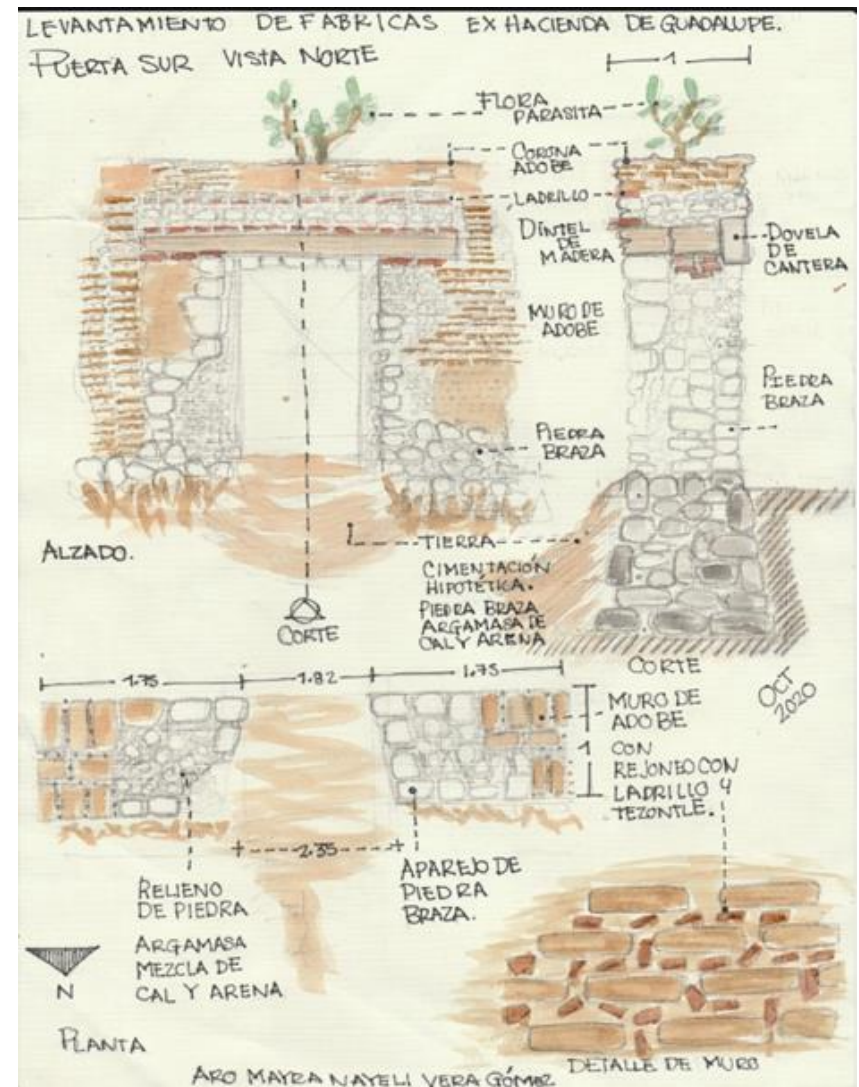 LEVANTAMIENTO DE FABRICAS EX HACIENDA DE GUADALUPE.
PUERTA SUR VISTA NORTE
1
FLORA
PARASITA
CORONA
ADOBE
LADRILLO
DINTEL
DE
MADERA
DOVELA
DE
CANTERA
MURO DE
ADOBE
PIEDRA
BRAZA
PIEDRA
BRAZA
ALZADO.
TIERRA
CIMENTACIÓN
HIPOTÉTICA.
PIEDRA BRAZA
ARGAMASA DE
CAL Y ARENA
CORTE
CORTE
OCT
2020
1.75
1.82
1.75
MURO DE
ADOBE
1
CON
REJONEO CON
LADRILLO Y
TEZONTLE.
2.35
RELLENO
DE PIEDRA
ARGAMASA
MEZCLA DE
CAL Y ARENA
APAREJO DE
PIEDRA
BRAZA.
N
PLANTA
DETALLE DE MURO
ARQ MAYRA NAYELI VERA GÓMEZ